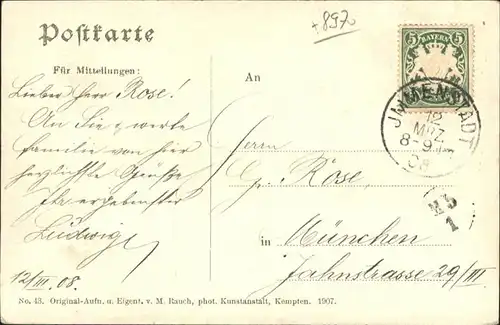 +897
Postkarte
5 BAYERN 5
Für Mitteilungen:
An
Lieber Herr Rose!
An Sie u. werte
Familie von hier
herzlichste Grüsse
Ihr ergebenster
Ludwig
12/III. 08.
IMMENSTADT
12
MRZ
8-9
08
Herrn
G. Rose,
in München
Jahnstrasse 29/III
No. 43. Original-Aufn. u. Eigent. v. M. Rauch, phot. Kunstanstalt, Kempten. 1907.